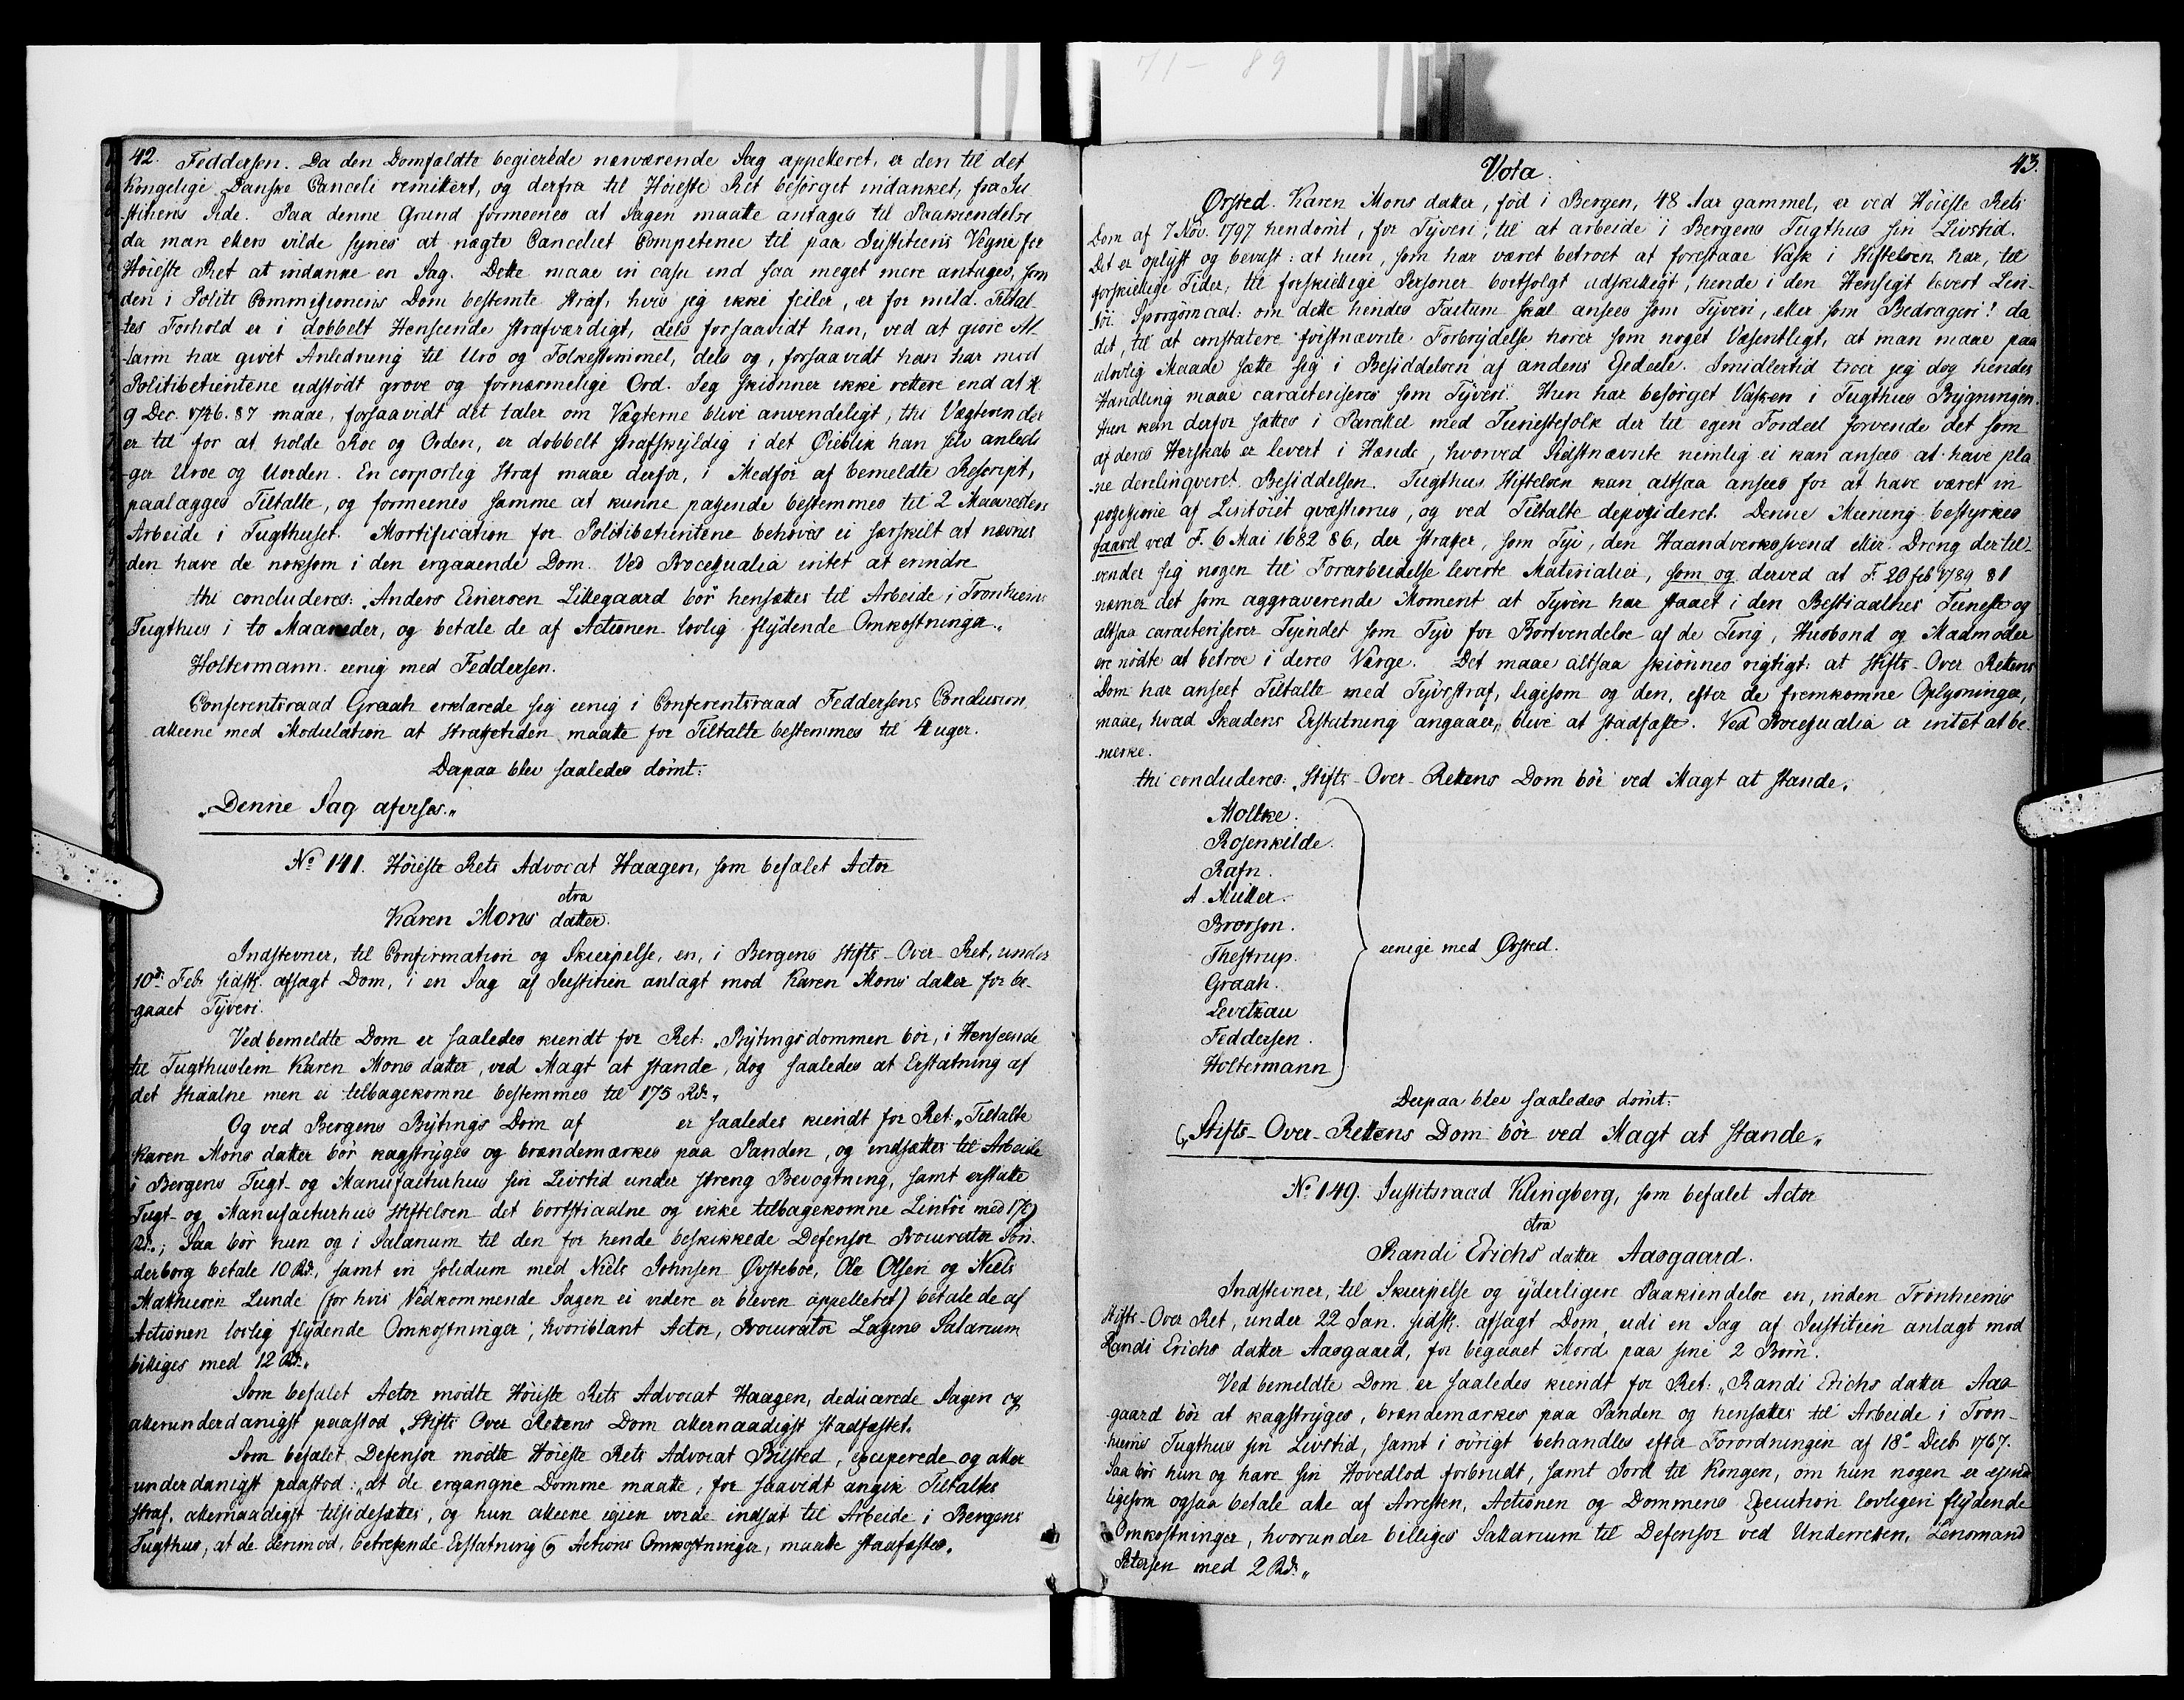 71- 89
42. Feddersen. Da den Domfældte begierede nærværende Sag appelleret, er den til det
Kongelige Danske Canceli remittert, og derfra til Høieste Ret besørget indanket, fra Ju
stitiens Side. Paa denne Grund formeenes at Sagen maatte antages til Paakiendelse
da man ellers vilde synes at nægte Canceliet Competence til paa Justitiens Vegne for
Høieste Ret at indanke en Sag. Dette maae in casu end saa meget mere antages, som
den i Politi Commissionens Dom bestemte Straf, hvis jeg ikke feiler, er for mild. Tiltal-
tes Forhold er i dobbelt Henseende strafværdigt, dels forsaavidt han, ved at giøre Al
larm har givet Anledning til Uro og Folkestimmel, dels og, forsaavidt han har mod
Politibetientene udstødt grove og fornærmelige Ord. Jeg skiønner ikke rettere end at R.
9 Dec. 1746. 87 maae, forsaavidt det taler om Vægterne blive anvendeligt, thi Vægteren der
er til for at holde Roe og Orden, er dobbelt strafskyldig i det Øieblik han selv anled
ger Uroe og Uorden. En corporlig Straf maae derfor, i Medfør af bemeldte Rescript,
paalægges Tiltalte, og formeenes samme at kunne passende bestemmes til 2 Maaneders
Arbeide i Tugthuset. Mortification for Politibetientene behøves ei særskilt at nævnes
den have de noksom i den ergaaende Dom. Ved Processualia intet at erindre
thi concluderes: Anders Einersen Lillegaard bør hensættes til Arbeide i Tronhiems
Tugthus i to Maaneder, og betale de af Actionen lovlig flydende Omkostninger.„
Holtermann. eenig med Feddersen.
Conferentsraad Graah erklærede sig eenig i Conferentsraad Feddersens Conclusion,
alleene med Modulation at straffetiden maatte for Tiltalte bestemmes til 4 uger.
Derpaa blev saaledes dømt:
„Denne Sag afvises.„
No 141. Høieste Rets Advocat Haagen, som befalet Actor
ctra
Karen Mons datter.
Indstevner, til Confirmation og Skierpelse, en, i Bergens Stifts-Over-Ret, under
10de Febr sidstl. afsagt Dom, i en Sag af Justitien anlagt mod Karen Mons datter for be-
gaaet Tyveri.
Ved bemeldte Dom er saaledes kiendt for Ret: „Bytingsdommen bør, i Henseende
til Tugthuslem Karen Mons datter, ved Magt at stande, dog saaledes at Erstatning af
det Stiaalne men ei tilbagekomne bestemmes til 175 Rdr.„
Og ved Bergens Bytings Dom af er saaledes kiendt for Ret: „Tiltalte
Karen Mons datter bør kagstryges og brændemærkes paa Panden, og indsættes til Arbeide
i Bergens Tugt- og Manufacturhus sin Livstid under streng Bevogtning, samt erstatte
Tugt- og Manufacturhus Stiftelsen det bortstiaalne og ikke tilbagekomne Lintøi med
Rdr.; Saa bør hun og i Salarium til den for hende beskikkede Defensor Procurator Søn-
derborg betale 10 Rdr, samt in solidum med Niels Johnsen Øvsteboe, Ole Olsen og Niels
Mathiesen Lunde (for hvis Vedkommende Sagen ei videre er bleven appelleret) betale de af
Actionen lovlig flydende Omkostninger, hvoriblant Actor, Procurator Lagens Salarium
billiges med 12 Rdr.„
Som befalet Actor mødte Høieste Rets Advocat Haagen, deducerede Sagen og
allerunderdanigst paastod „Stifts Over Rettens Dom allernaadigst stadfæstet.
Som befalet Defensor mødte Høieste Rets Advocat Bilsted, exciperede og aller
underdanigst paastod: „at de ergangne Domme maatte, for saavidt angik Tiltaltes
straf, allernaadigst tilsidesættes, og hun alleene igien vorde indsat til Arbeide i Bergens
Tugthus, at de derimod, betreffende Erstatning og Actions Omkostninger, maatte stadfæstes.
43.
Vota.
Ørsted. Karen Mons datter, fød i Bergen, 48 Aar gammel, er ved Høieste Rets
Dom af 7 Nov. 1797 hendømt, for Tyveri, til at arbeide i Bergens Tugthus sin Livstid.
Det er oplyst og bevist: at hun, som har været betroet at forestaae Vask i Stiftelsen har, til
forskiellige Tider, til forskiellige Personer bortsolgt adskilligt, hende i den Hensigt levert Lin-
tøi. Spørgsmaal: om dette hendes Factum skal ansees som Tyveri, eller som Bedrageri? da
det, til at constatere førstnævnte Forbrydelse hører som noget Væsentligt, at man maae paa
ulovlig Maade sætte sig i Besiddelsen af andens Eiedeele. Imidlertid troer jeg dog hendes
Handling maae caracteriseres som Tyveri. Hun har besørget Vasken i Tugthus Bygningen.
Hun kan derfor sættes i Parallel med Tienestefolk der til egen Fordeel forvende det som
af deres Herskab er levert i Hænde, hvorved Sidstnævnte nemlig ei kan ansees at have pla
ne derelinqveret Besiddelsen. Tugthus Stiftelsen kan altsaa ansees for at have været in
possessione af Lintøiet qvæstionis, og ved Tiltalte depossideret. Denne Meening bestyrkes
saavel ved F. 6 Mai 1682 86, der straffer, som Tyv, den Haandverkssvend eller Dreng der til-
vender sig nogen til Forarbeidelse leverte Materialier, som og derved at F. 20 feb 1789 81
nævner det som aggraverende Moment at Tyven har staaet i den Bestiaalnes Tieneste og
altsaa caracteriserer Tyendet som Tyv for Bortvendelse af de Ting, Husbond og Madmoder
ere nødte at betroe i deres Værge. Det maae altsaa skiønnes rigtigt: at Stifts-Over Rettens
Dom har anseet Tiltalte med Tyvsstraf, ligesom og den, efter de fremkomne Oplysninger,
maae, hvad Skadens Erstatning angaaer, blive at stadfæste. Ved Processualia er intet at be-
mærke.
thi concluderes: „Stifts-Over-Rettens Dom bør ved Magt at stande.
Moltke.
Rosenkilde.
Rafn.
A. Müller.
Brorson.
Thestrup.
Graah.
Levetzau
Feddersen.
Holtermann
eenige med Ørsted.
Derpaa blev saaledes dømt:
„Stifts-Over-Rettens Dom bør ved Magt at stande„
No 149. Justitsraad Klingberg, som befalet Actor
ctra
Randi Erichs datter Aasgaard.
Indstevner, til Skierpelse og yderligere Paakiendelse en, inden Tronhiems
Stifts-Over Ret, under 22 Jan. sidstl. afsagt Dom, udi en Sag af Justitien anlagt mod
Randi Erichs datter Aasgaard, for begaaet Mord paa sine 2 Børn.
Ved bemeldte Dom er saaledes kiendt for Ret: „Randi Erichs datter Aas
gaard bør at kagstryges, brændemærkes paa Panden og hensættes til Arbeide i Tron-
hiems Tugthus sin Livstid, samt i øvrigt behandles efter Forordningen af 18de Decb 1767.
Saa bør hun og have sin Hovedlod forbrudt, samt Jord til Kongen, om hun nogen er eiende
ligesom ogsaa betale alle af Arresten, Actionen og Dommens Execution lovligen flydende
Omkostninger, hvorunder billiges Sallarium til Defensor ved Underretten, Lensmand
Petersen med 2 Rdr.„